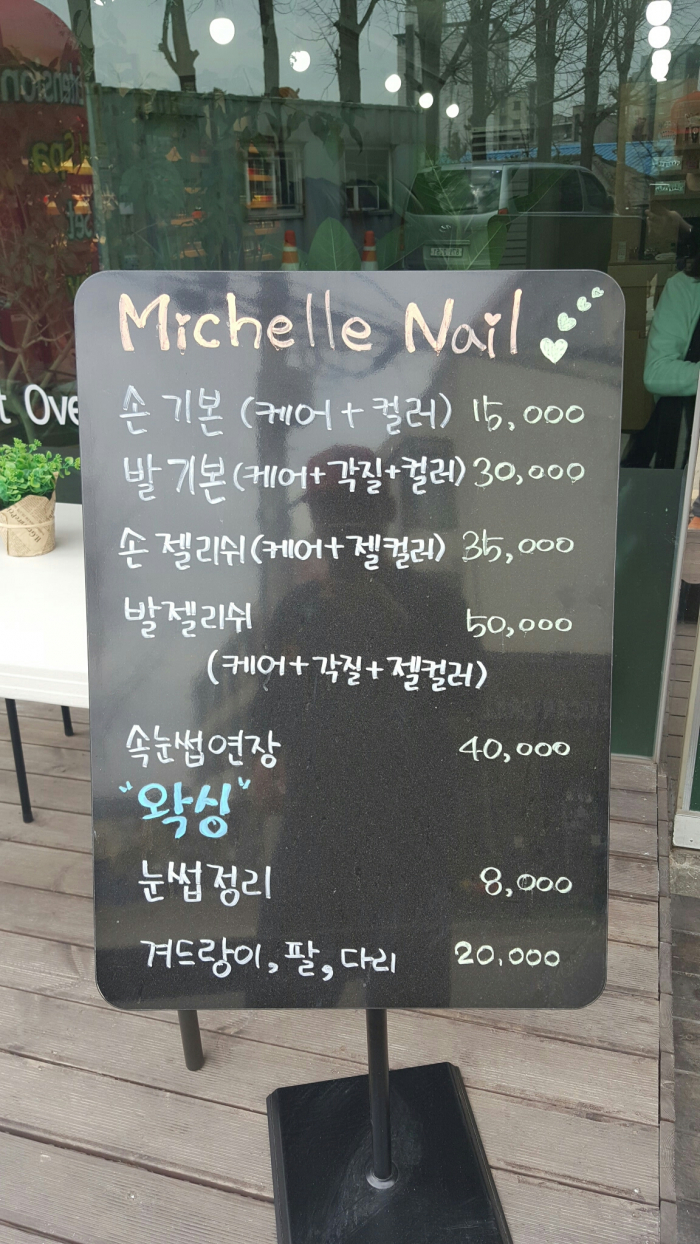 Michelle Nail
손 기본 (케어+컬러) 15,000
발 기본(케어+각질+컬러) 30,000
손 젤리쉬(케어+젤컬러) 35,000
발젤리쉬 50,000
(케어+각질+젤컬러)
속눈썹연장 40,000
"왁싱"
눈썹정리 8,000
겨드랑이, 팔, 다리 20,000
t Ove